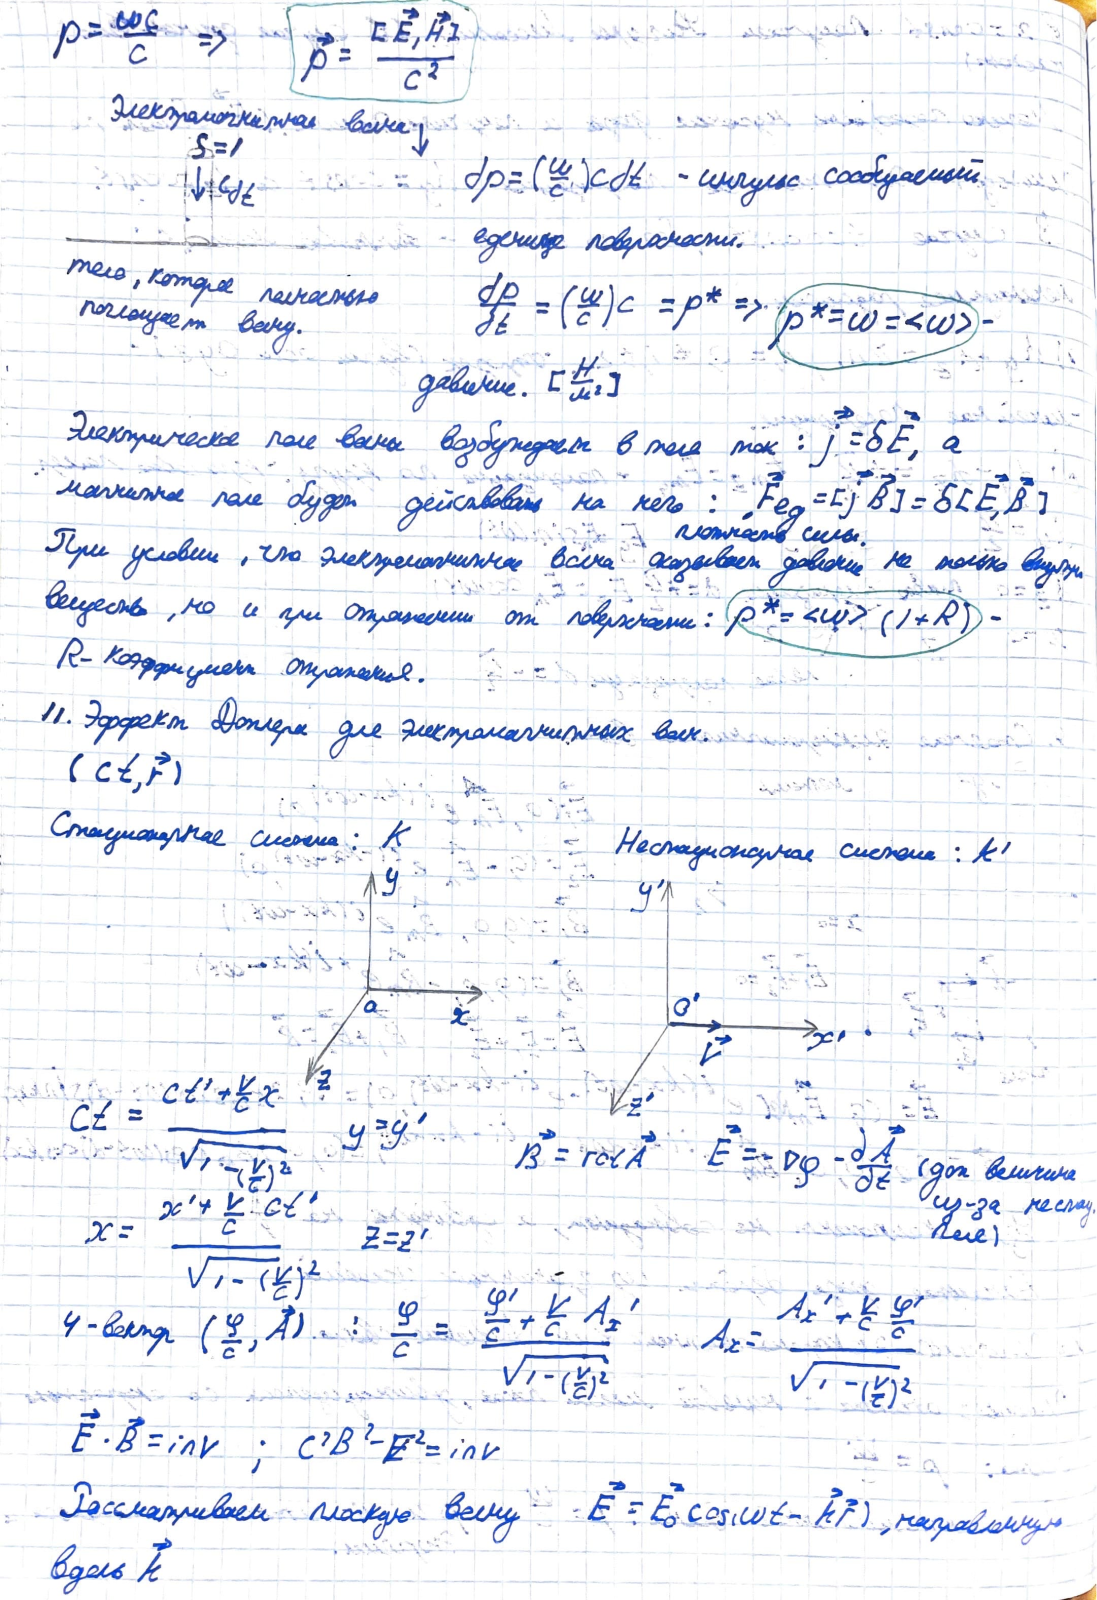 p = wc/c => p⃗ = [E⃗, H⃗]/c²
Электромагнитная волна ↓
S=1
↓ cdt
dp = (w/c) c dt - импульс сообщаемый
единице поверхности.
тело, которое полностью
поглощает волну.
dp/dt = (w/c) c = p* => p* = w = <w> -
давление. [Н/м²]
Электрическое поле волны возбуждает в теле ток : j⃗ = δE⃗, а
магнитное поле будет действовать на него : F⃗ед = [j⃗ B⃗] = δ[E⃗, B⃗]
плотность силы.
При условии, что электромагнитная волна оказывает давление не только внутри
вещества, но и при отражении от поверхности : p* = <w> (1+R) -
R- коэффициент отражения.
11. Эффект Доплера для электромагнитных волн.
(ct, r⃗)
Стационарная система : K
Нестационарная система : K'
y
y'
O
x
z
O'
V⃗
x'
z'
ct = (ct' + V/c x) / √(1-(V/c)²)
y = y'
B⃗ = rot A⃗
E⃗ = -∇φ - ∂A⃗/∂t (доп величина
из-за нестац.
поля)
x = (x' + V/c ct') / √(1-(V/c)²)
z = z'
4-вектор (φ/c, A⃗) : φ/c = (φ'/c + V/c Ax') / √(1-(V/c)²)
Ax = (Ax' + V/c φ'/c) / √(1-(V/c)²)
E⃗ · B⃗ = inv ; c²B² - E² = inv
Рассматриваем плоскую волну E⃗ = E⃗₀ cos(ωt - k⃗r⃗), направленную
вдоль k⃗